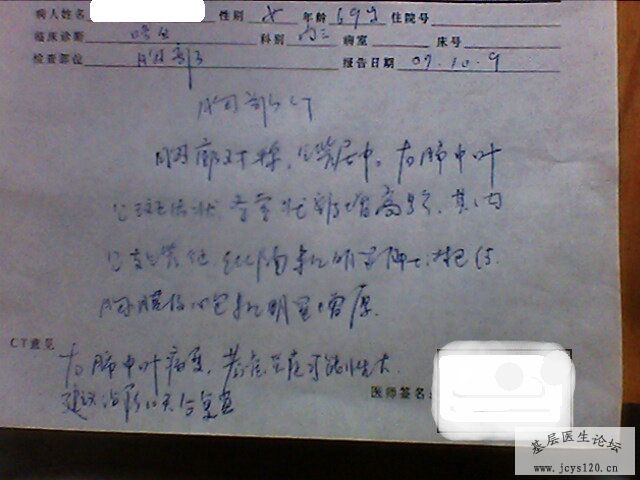 病人姓名 性别 女 年龄 69岁 住院号
临床诊断 咯血 科别 内三 病室 床号
检查部位 胸部 报告日期 07.10.9
胸部CT
胸廓对称，气管居中。右肺中叶
见斑片状 条索状 影增高影，其内
见支气管征。纵隔未见明显肿大淋巴结
胸膜及心包未见明显增厚。
CT意见
右肺中叶病变，考虑炎症可能性大
建议治疗10天后复查
医师签名:
基层医生论坛
www.jcys120.cn